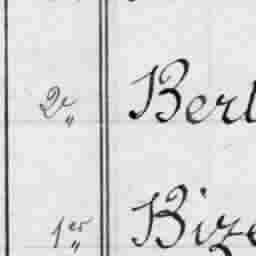 2e Bert
1er Bize